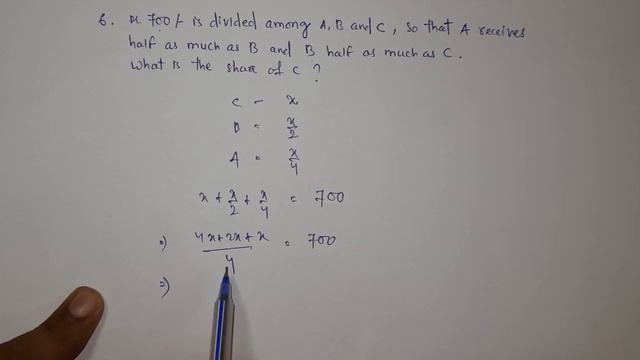 6. Rs. 700/- is divided among A, B and C, so that A receives
half as much as B and B half as much as C.
What is the share of C ?
C - x
B = x/2
A = x/4
x + x/2 + x/4 = 700
=) 4x+2x+x/4 = 700
=)